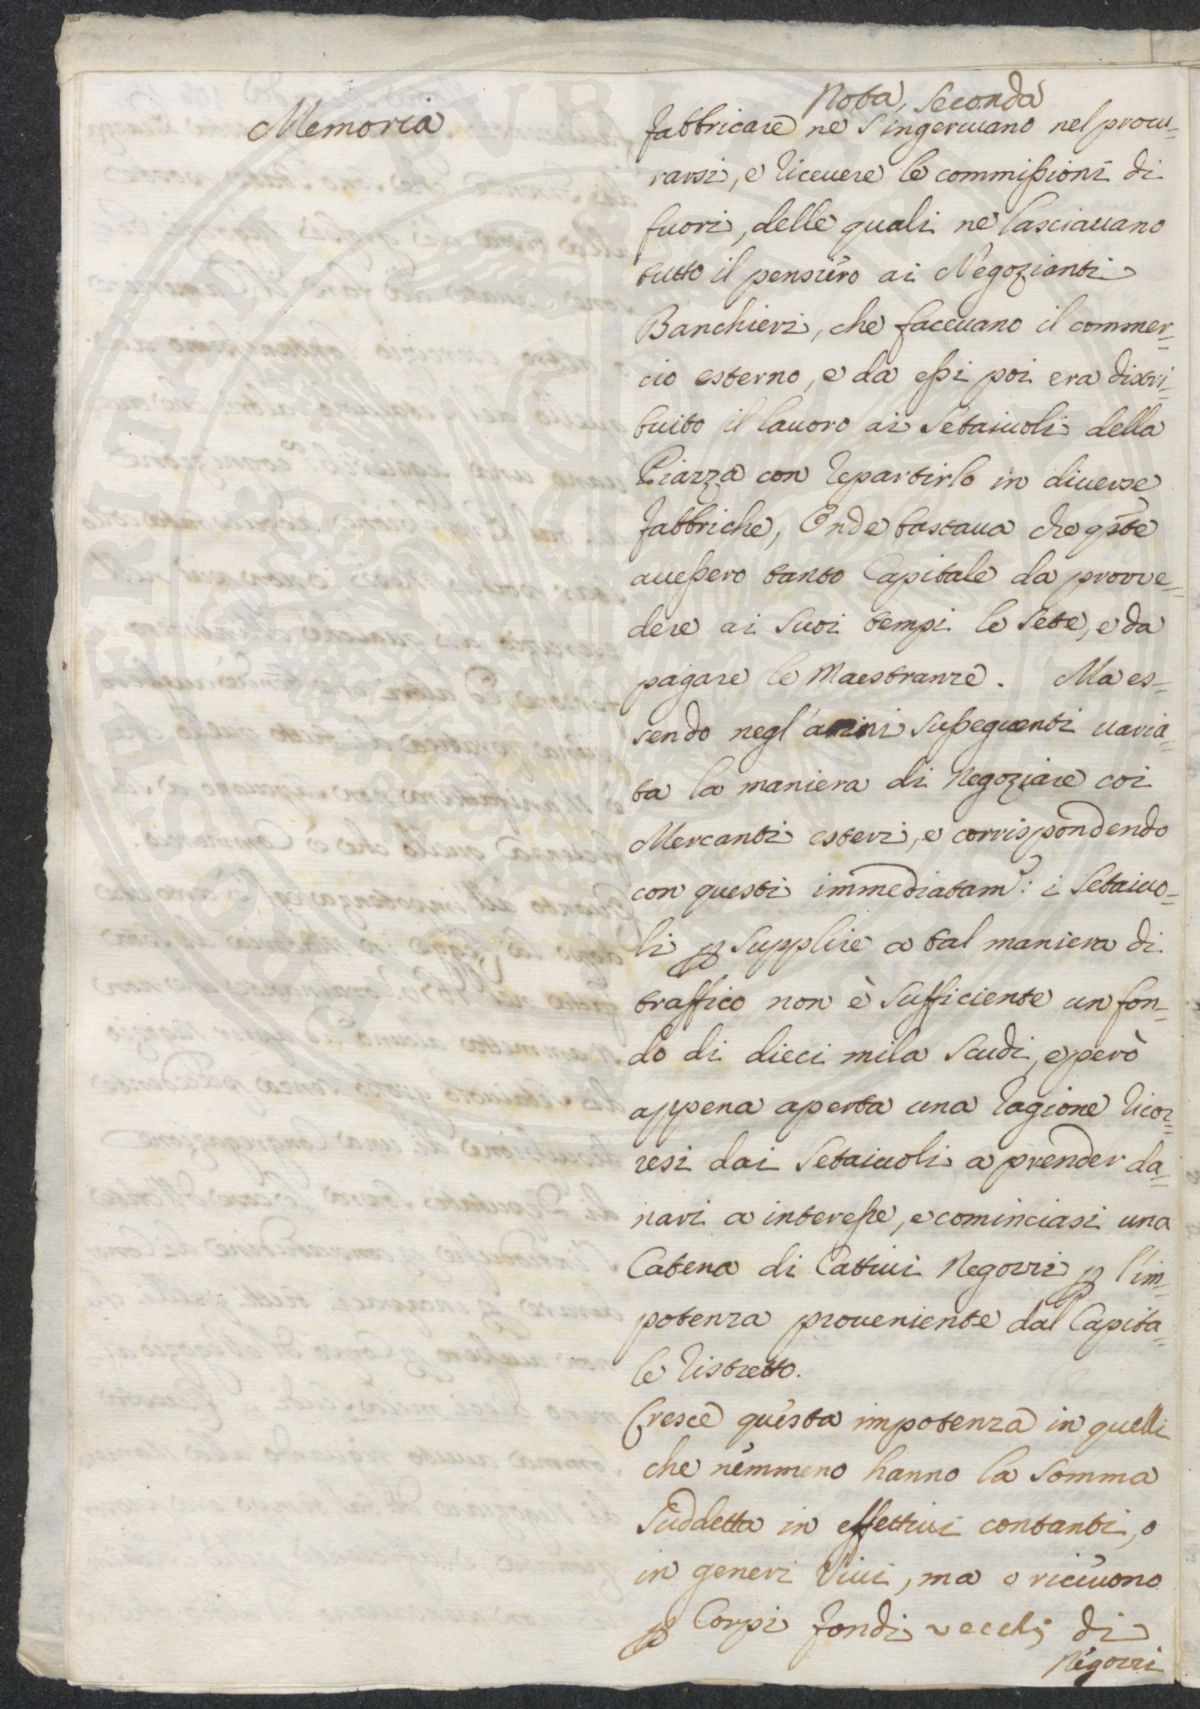 Memoria
Nota, Seconda
fabbricare ne s'ingerivano nel procu=
rarsi, e ricevere le commissioni di
fuori, delle quali ne lasciavano
tutto il pensiero ai Negozianti
Banchieri, che facevano il commer=
cio esterno, e da essi poi era distri=
buito il lavoro ai Setaiuoli della
Piazza con repartirlo in diverse
fabbriche, Onde bastava che queste
avessero tanto Capitale da provve=
dere ai suoi tempi le sete, e da
pagare le Maestranze. Ma es=
sendo negl'anni susseguenti varia=
ta la maniera di Negoziare coi
Mercanti esteri, e corrispondendo
con questi immediatam:e i Setaiuo=
li p supplire a tal maniera di
traffico non è sufficiente un fon=
do di dieci mila scudi, e però
appena aperta una ragione ricor=
resi dai Setaiuoli a prender da=
nari a interesse, e cominciasi una
Catena di Cattivi Negozzi p l'im=
potenza proveniente dal Capita=
le ristretto.
Cresce questa impotenza in quelli
che nemmeno hanno la somma
suddetta in effettivi contanti, o
in generi vivi, ma o ricevono
p Corpi fondi vecchj di
Negozzi